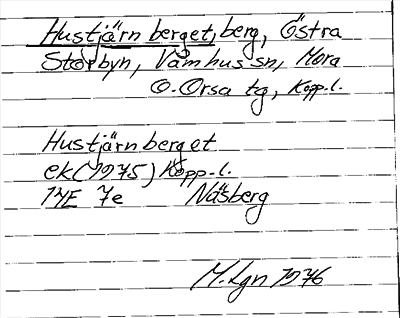 Hustjärnberget, berg, Östra
Storbyn, Våmhus sn, Mora
o. Orsa tg, Kopp.l.
Hustjärnberget
ek (1975) Kopp.l.
14E 7e Näsberg
M.Lgn 1976